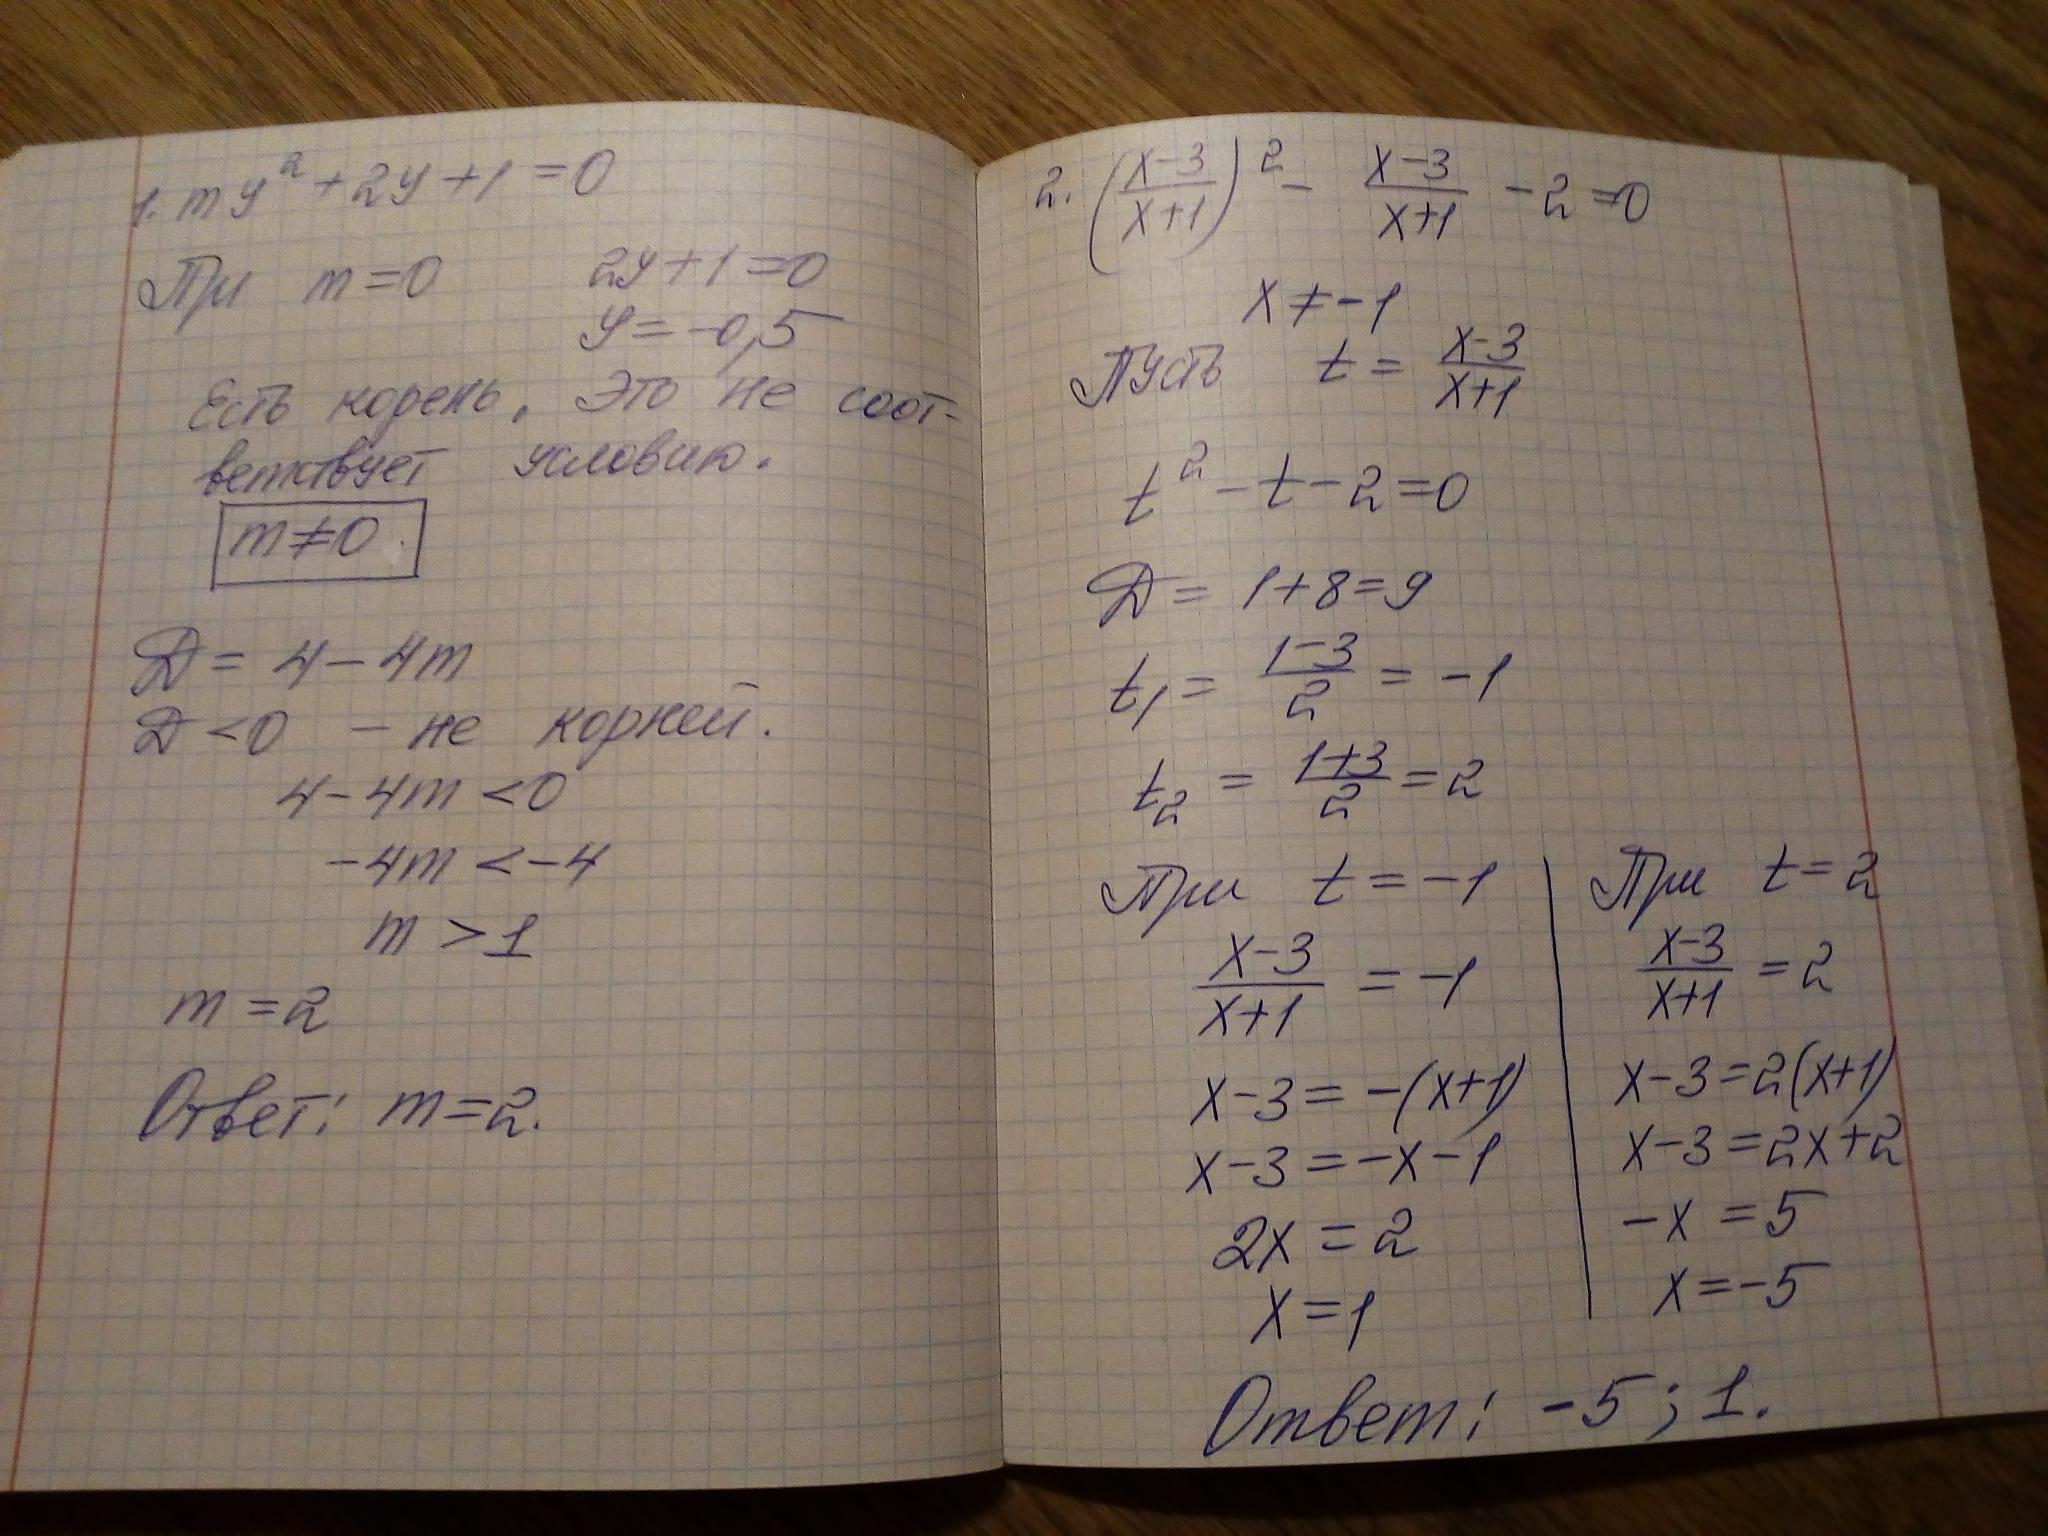 1. my² + 2y + 1 = 0
При m = 0 2y + 1 = 0
y = -0,5
Есть корень, это не соот-
ветствует условию.
m ≠ 0.
D = 4 - 4m
D < 0 - не корней.
4 - 4m < 0
-4m < -4
m > 1
m = 2
Ответ: m = 2.
2. ((x-3)/(x+1))² - (x-3)/(x+1) - 2 = 0
x ≠ -1
Пусть t = (x-3)/(x+1)
t² - t - 2 = 0
D = 1 + 8 = 9
t₁ = (1-3)/2 = -1
t₂ = (1+3)/2 = 2
При t = -1
(x-3)/(x+1) = -1
x - 3 = -(x+1)
x - 3 = -x - 1
2x = 2
x = 1
При t = 2
(x-3)/(x+1) = 2
x - 3 = 2(x+1)
x - 3 = 2x + 2
-x = 5
x = -5
Ответ: -5; 1.